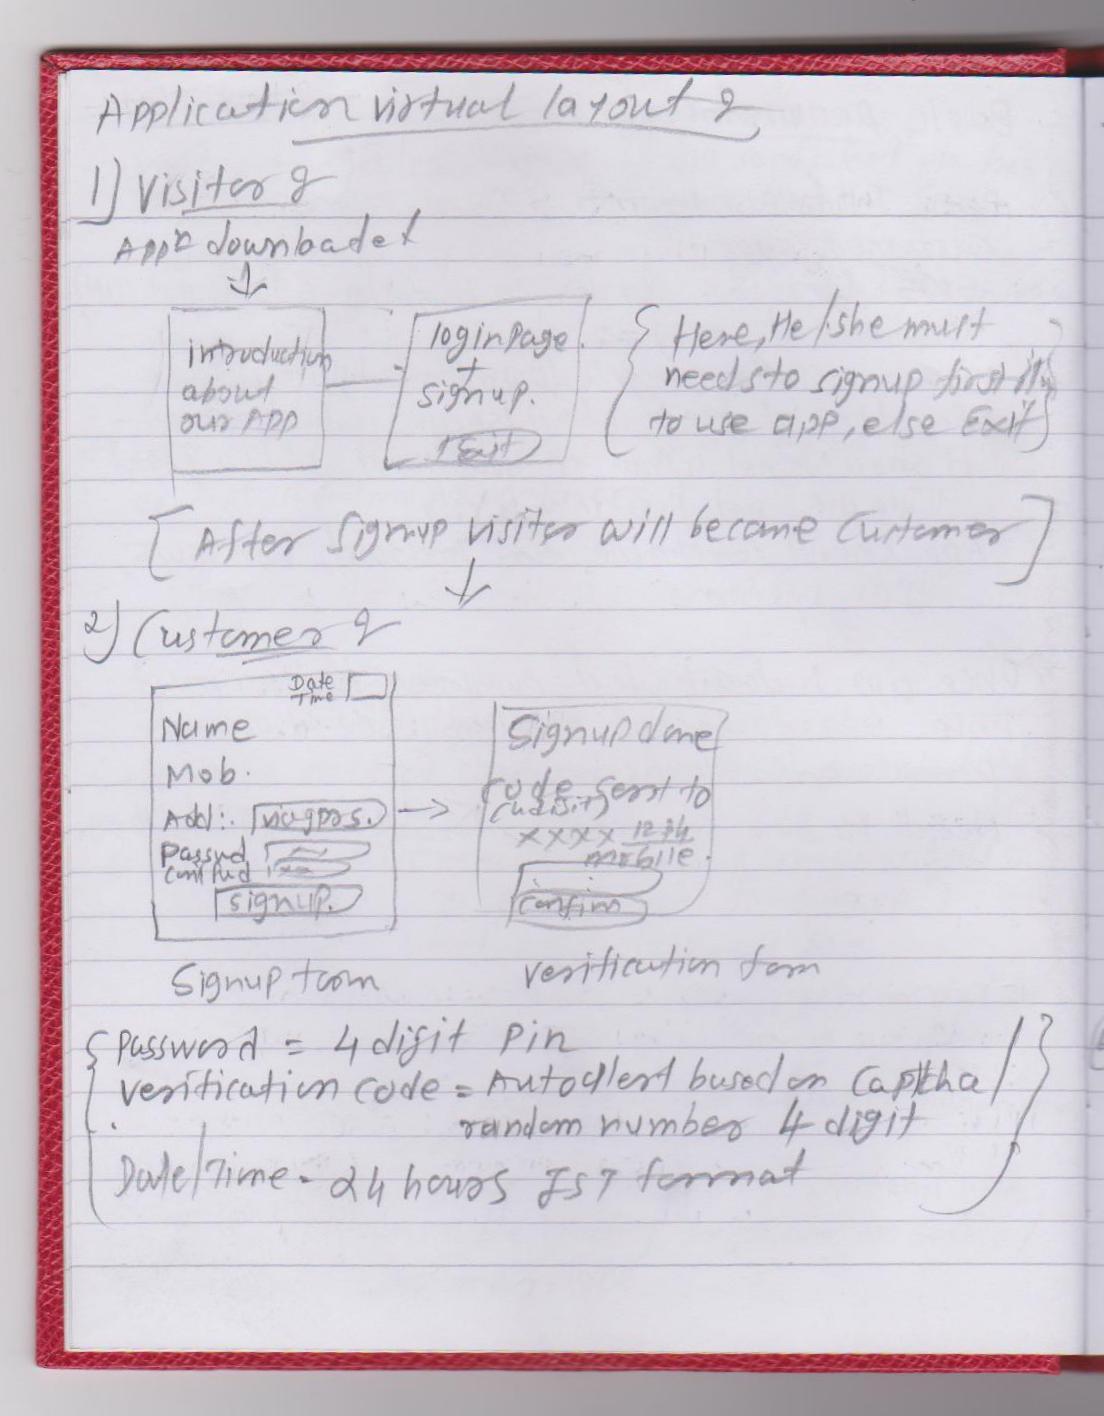 Application virtual layout :
1) Visitor :
Appn downloaded
introduction
about
our APP
login page
+
signup.
Exit
Here, He/she must
needs to signup first
to use app, else Exit
[After signup visitor will become Customer]
2) Customer :
Date
Time
Name
Mob.
Add:. via gprs.
Passwd
Conf Pwd xx
signup.
Signup form
Signup done
Code sent to
(4 digit)
xxxx 1234
mobile.
Confirm
verification form
Password = 4 digit Pin
verification code = Autoalert based on Captcha/
random number 4 digit
Date/Time - 24 hours IST format